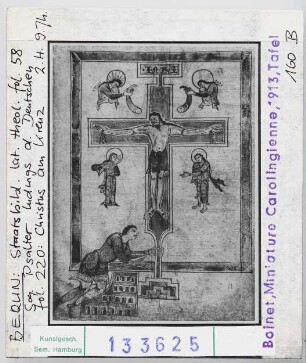 BERLIN: Staatsbibl. lat. theol. fol. 58
Sog. Psalter Ludwigs d. Deutschen
fol. 220: Christus am Kreuz 2. H. 9. Jh.
Boinet, Miniature Carolingienne, 1913, Tafel
160 B
Kunstgesch.
Sem. Hamburg
133625